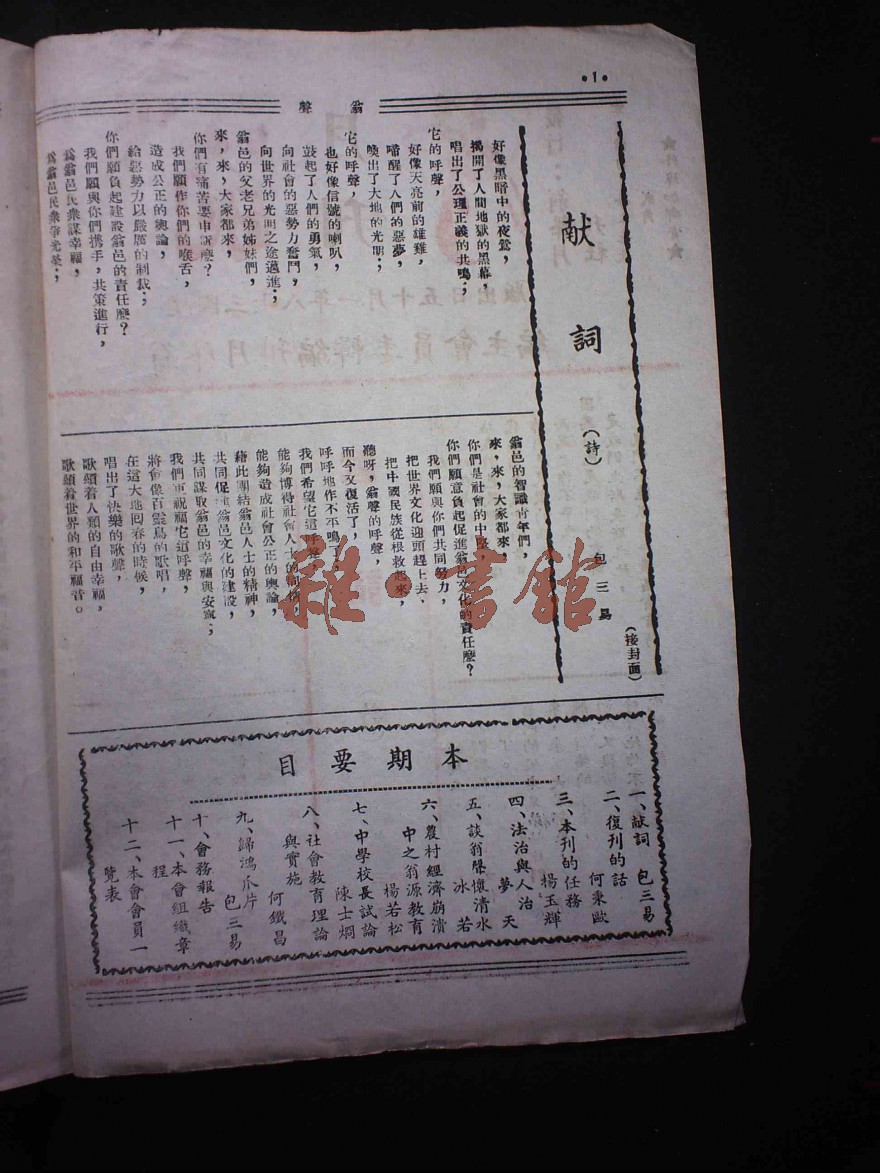 •1•
翁聲
献詞
(詩)
包三易
(接封面)
好像黑暗中的夜鶯，
揭開了人間地獄的黑幕，
唱出了公理正義的共鳴；
它的呼聲，
好像天亮前的雄雞，
啼醒了人們的惡夢，
喚出了大地的光明；
它的呼聲，
也好像信號的喇叭，
鼓起了人們的勇氣，
向社會的惡勢力奮鬥，
向世界的光明之途邁進；
翁邑的父老兄弟姊妹們，
來，來，大家都來，
你們有痛苦要申訴麼？
我們願作你們的喉舌，
造成公正的輿論，
給惡勢力以嚴厲的制裁；
你們願負起建設翁邑的責任麼？
我們願與你們携手，共策進行，
為翁邑民衆謀幸福，
為翁邑民衆爭光榮；
翁邑的智識青年們，
來，來，大家都來，
你們是社會的中堅，
你們願意負起促進翁邑文化的責任麼？
我們願與你們共同努力，
把世界文化迎頭趕上去，
把中國民族從根救起來，
聽呀，翁聲的呼聲，
而今又復活了，
呼呼地作不平鳴了，
我們希望它這呼聲，
能夠博得社會人士的同情，
能夠造成社會公正的輿論，
藉此團結翁邑人士的精神，
共同促進翁邑文化的建設，
共同謀取翁邑的幸福與安寧；
我們更祝福它這呼聲，
將會像百靈鳥的歌唱，
在這大地回春的時候，
唱出了快樂的歌聲，
歌頌着人類的自由幸福，
歌頌着世界的和平福音。
本期要目
一、献詞 包三易
二、復刊的話 何秉歐
三、本刊的任務 楊玉輝
四、法治與人治 夢天
五、談翁聲懷清水 冰若
六、農村經濟崩潰
中之翁源教育 楊若松
七、中學校長試論 陳士烱
八、社會教育理論
與實施 何鐵昌
九、歸鴻爪片 包三易
十、會務報告
十一、本會組織章
程
十二、本會會員一
覽表
雜·書館